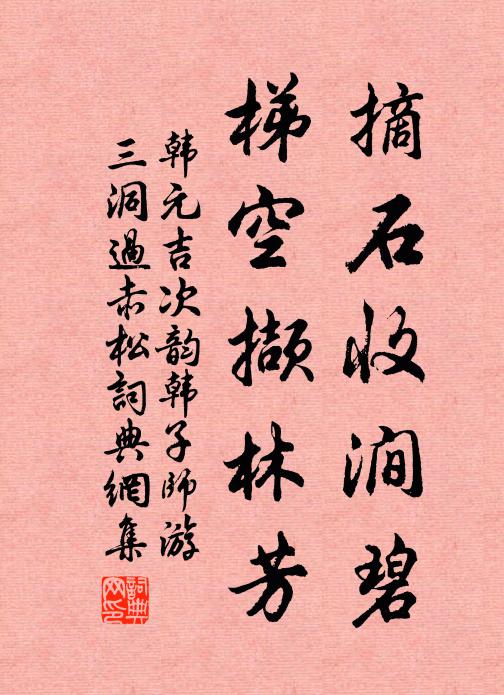 摘石收涧碧
梯空撷林芳
韩元吉次韵韩子师游
三洞過赤松詞典網集
詞典
网印